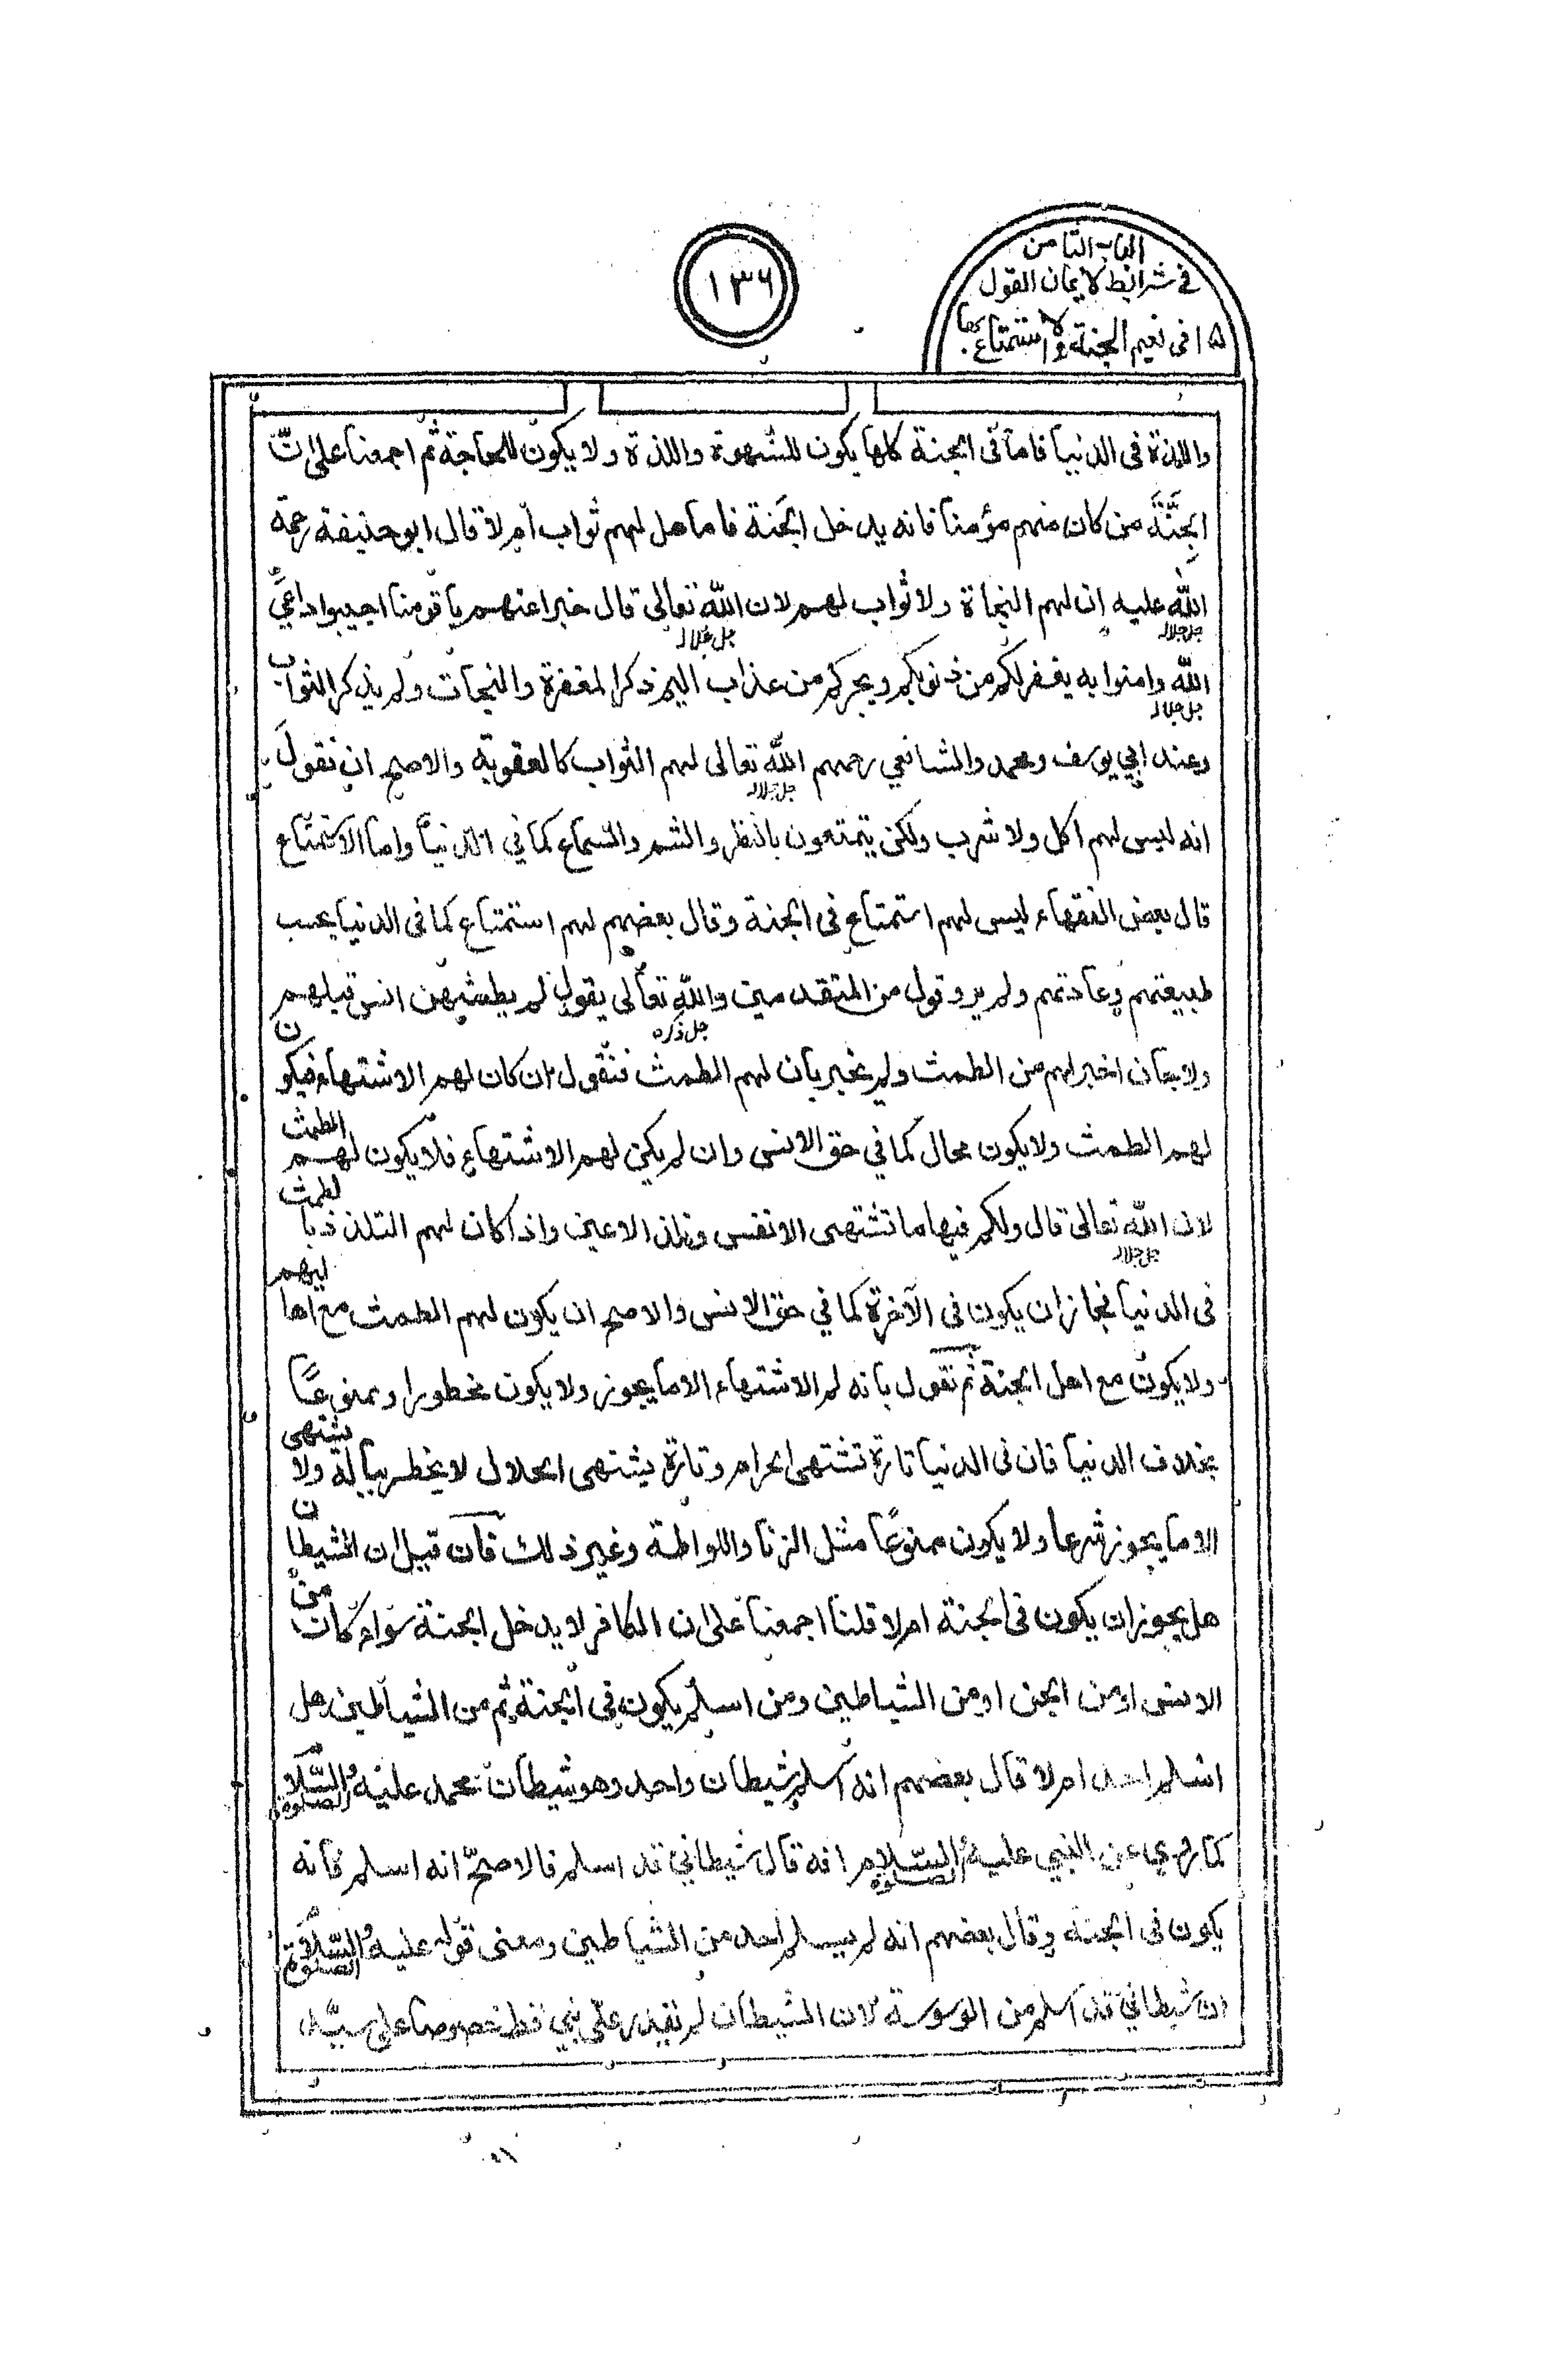 الباب الثامن
في شرائط الايمان القول
١٥ في نعيم الجنة والاستمتاع بها
١٣٦
واللذة فى الدنيا فاما فى الجنة كلها يكون للشهوة واللذة ولا يكون للحاجة ثم اجمعنا على ان
الجنة من كان منهم مؤمنا فانه يدخل الجنة فاما هل لهم ثواب ام لا قال ابو حنيفة رحمة
الله جل جلاله عليه ان لهم النجاة ولا ثواب لهم لان الله جل جلاله تعالى قال خبرا عنهم يا قومنا اجيبوا داعي
الله جل جلاله وامنوا به يغفر لكم من ذنوبكم ويجركم من عذاب اليم ذكر المغفرة والنجات ولم يذكر الثواب
وعند ابي يوسف ومحمد والشافعي رحمهم الله جل جلاله تعالى لهم الثواب كالعقوبة والاصح ان نقول
انه ليس لهم اكل ولا شرب ولكن يتمتعون بالنظر والشم والسماع كما في الدنيا واما الاستمتاع
قال بعض الفقهاء ليس لهم استمتاع فى الجنة وقال بعضهم لهم استمتاع كما فى الدنيا بحسب
طبيعتهم وعادتهم ولم يرو قول من المتقدمين والله جل ذكره تعالى يقول لم يطمثهن انس قبلهم
ولا جان اخبر لهم من الطمث ولم يخبر بان لهم الطمث فنقول ان كان لهم الاشتهاء فيكون
لهم الطمث ولا يكون محال كما في حق الانس وان لم يكن لهم الاشتهاء فلا يكون لهم الطمث
لان الله جل جلاله تعالى قال ولكم فيها ما تشتهى الانفس وتلذ الاعين واذا كان لهم التلذذ بالطمث
فى الدنيا فجازان يكون فى الآخرة كما في حق الانس والاصح ان يكون لهم الطمث مع اهاليهم
ولا يكون مع اهل الجنة ثم نقول بانه لم الاشتهاء الا ما يجوز ولا يكون محظورا وممنوعا
بخلاف الدنيا فان فى الدنيا تارة تشتهى الحرام وتارة يشتهى الحلال لا يخطر بباله ولا يشتهى
الا ما يجوز شرعا ولا يكون ممنوعا مثل الزنا واللواطة وغير ذلك فان قيل ان الشيطان
هل يجوز ان يكون فى الجنة ام لا قلنا اجمعنا على ان الكافر لا يدخل الجنة سواء كان من
الانس او من الجن او من الشياطين ومن اسلم يكون فى الجنة ثم من الشياطين هل
اسلم احد ام لا قال بعضهم انه اسلم شيطان واحد وهو شيطان محمد عليه الصلوة والسلام
كما روي عن النبي عليه الصلوة والسلام انه قال شيطاني قد اسلم فالاصح انه اسلم فانه
يكون فى الجنة وقال بعضهم انه لم يسلم احد من الشياطين ومعنى قوله عليه الصلوة والسلام
ان شيطاني قد اسلم من الوسوسة لان الشيطان لم يقدر على نبي قط خصوصا على سيد